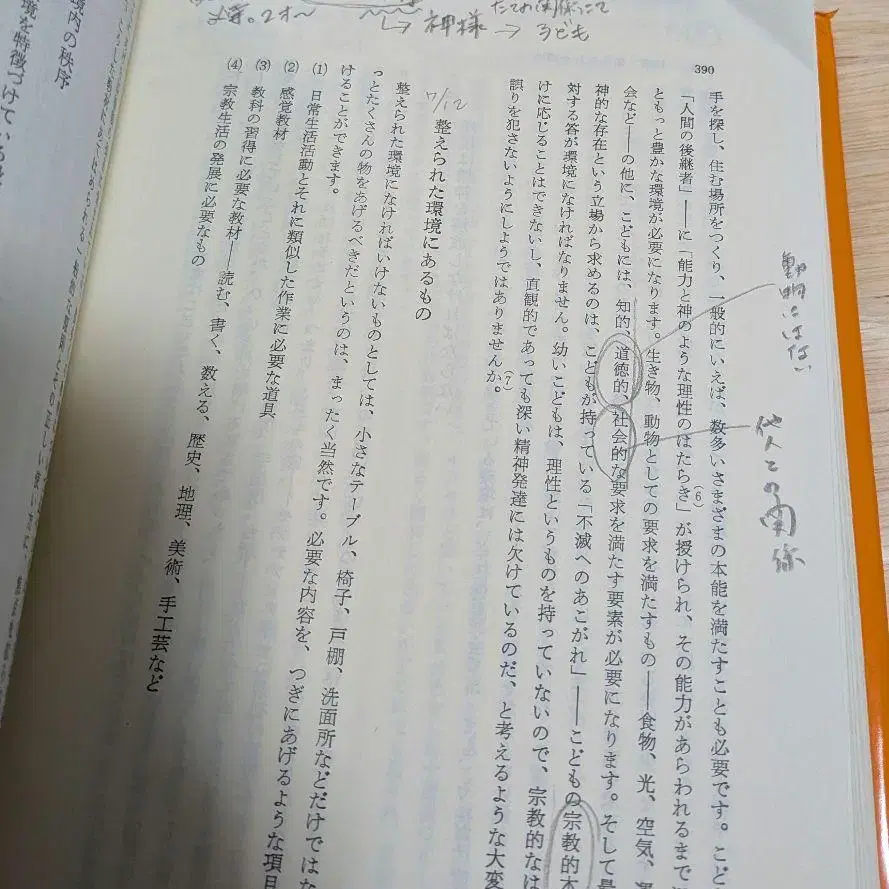 たての関係にて
└→ 神様 → 子ども
390
動物にはない
他人との関係
手を探し、住む場所をつくり、一般的にいえば、数多いさまざまの本能を満たすことも必要です。こど
「人間の後継者」――に「能力と神のような理性のはたらき」(6)が授けられ、その能力があらわれるまで
ともっと豊かな環境が必要になります。生き物、動物としての要求を満たすもの――食物、光、空気、
会など――の他に、こどもには、知的、道徳的、社会的な要求を満たす要素が必要になります。そして
神的な存在という立場から求めるのは、こどもが持っている「不滅へのあこがれ」――こどもの宗教的本
対する答が環境になければなりません。幼いこどもは、理性というものを持っていないので、宗教的なは
けに応じることはできないし、直観的であっても深い精神発達には欠けているのだ、と考えるような大変
誤りを犯さないようにしようではありませんか。(7)
7/12
整えられた環境にあるもの
整えられた環境になければいけないものとしては、小さなテーブル、椅子、戸棚、洗面所などだけではな
っとたくさんの物をあげるべきだというのは、まったく当然です。必要な内容を、つぎにあげるような項目
けることができます。
(1) 日常生活活動とそれに類似した作業に必要な道具
(2) 感覚教材
(3) 教科の習得に必要な教材――読む、書く、数える、歴史、地理、美術、手工芸など
(4) 宗教生活の発展に必要なもの
境内の秩序
境を特徴づけている